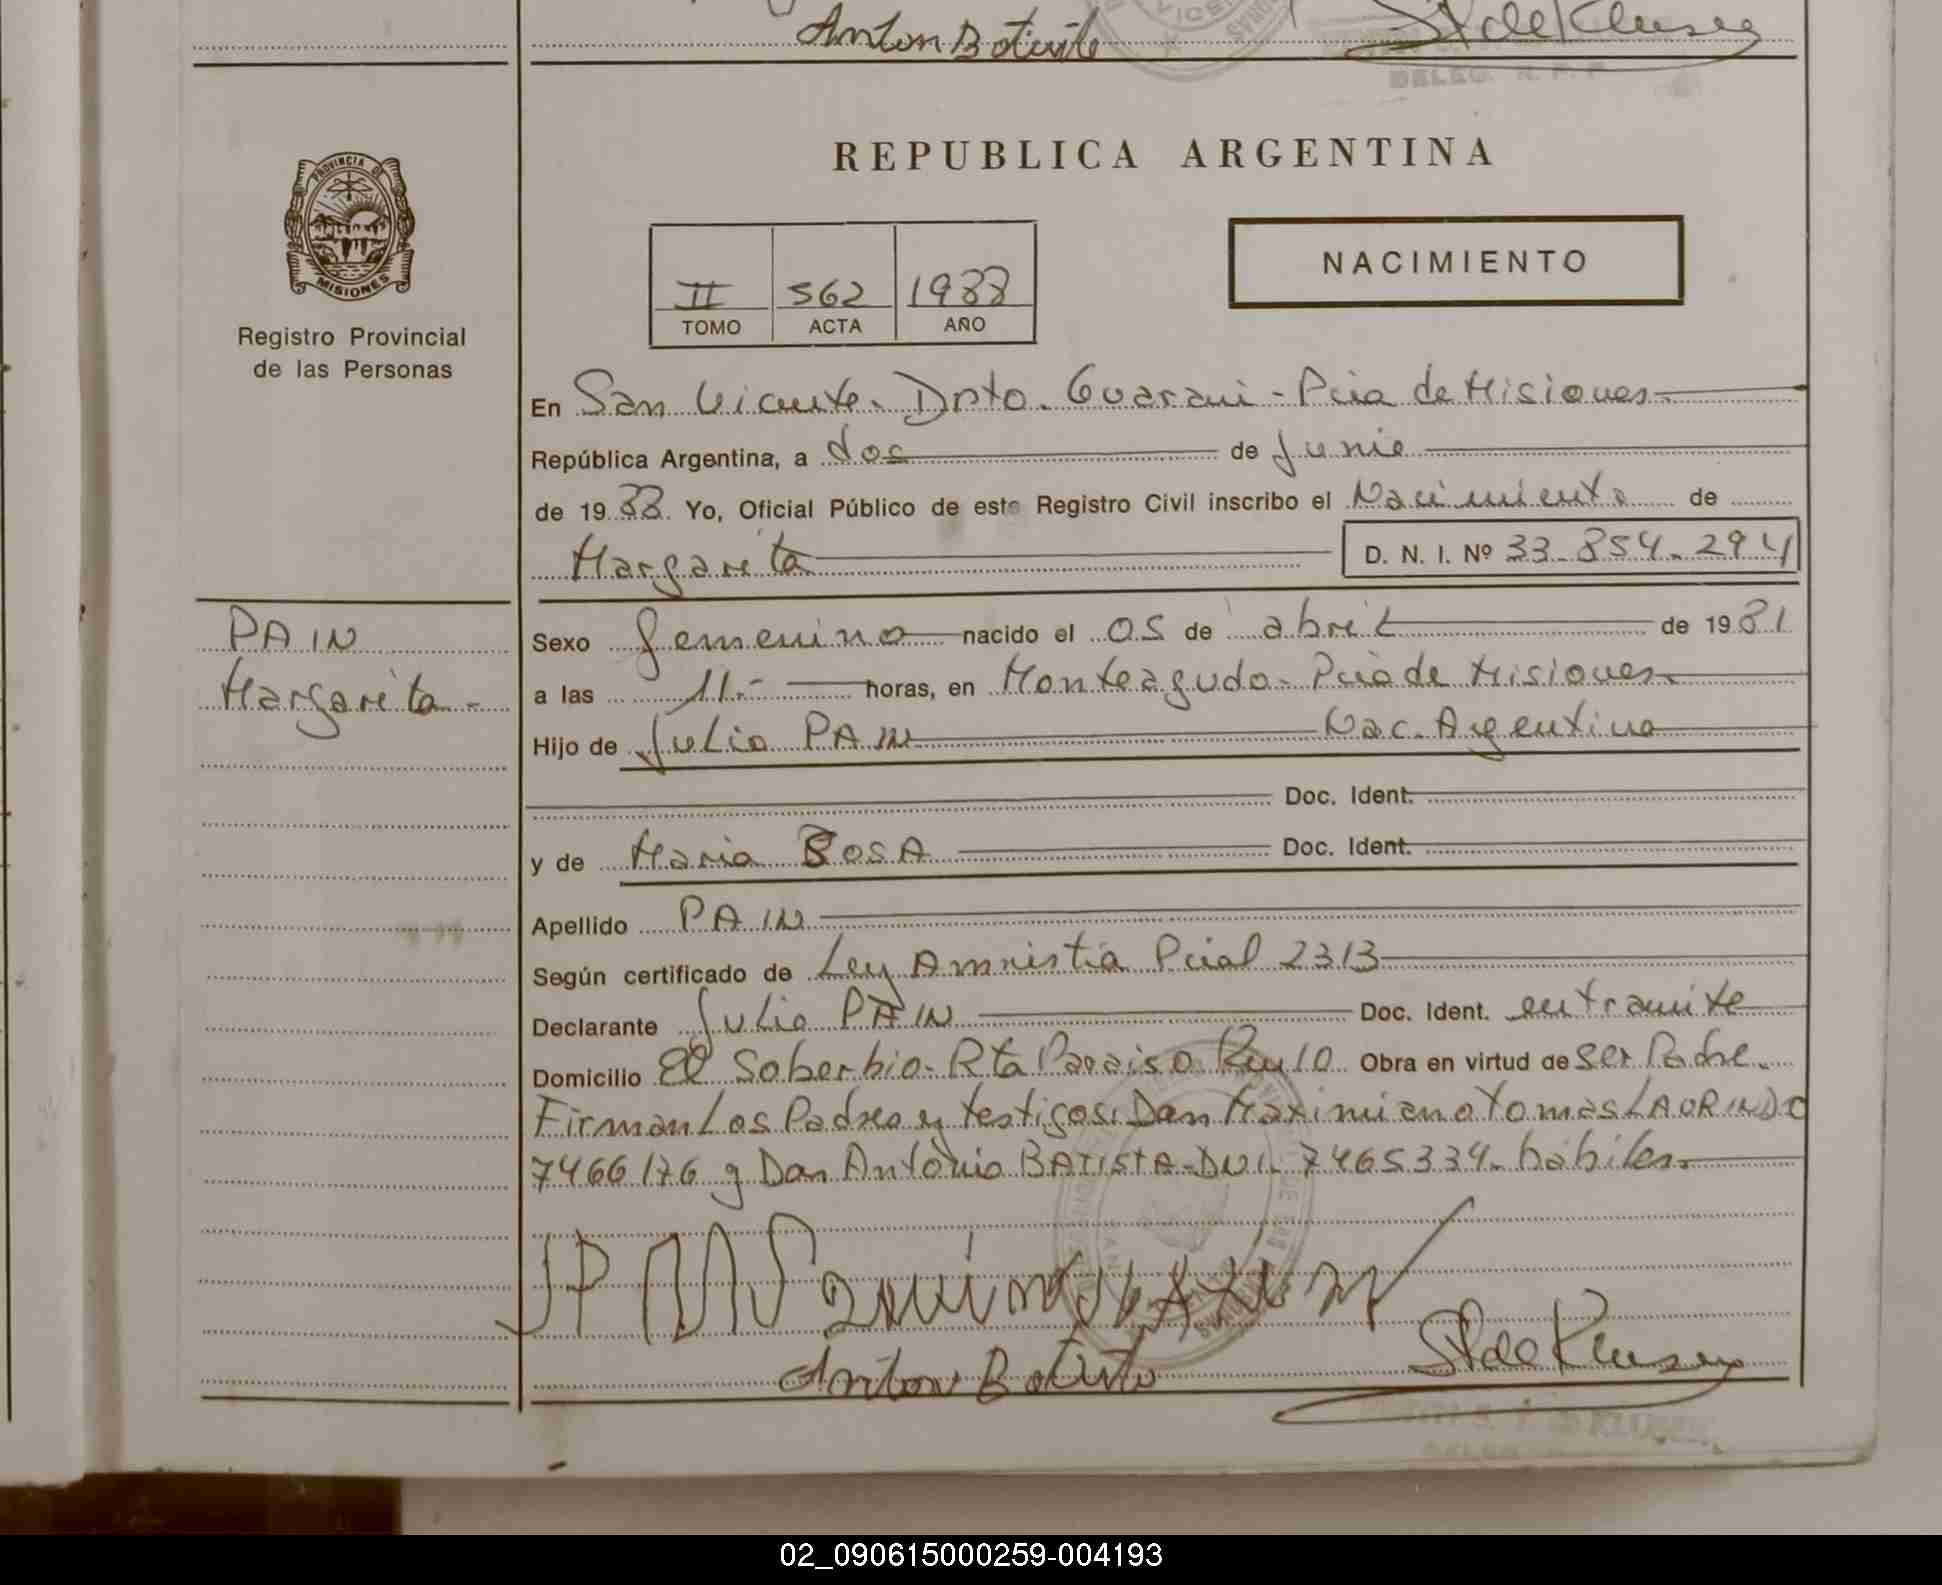 Anton Batista
DELEG. R. P. P.
REPUBLICA ARGENTINA
PROVINCIA DE
MISIONES
Registro Provincial
de las Personas
NACIMIENTO
II 562 1988
TOMO ACTA AÑO
En San Vicente. Dpto. Guarani - Pcia de Misiones
República Argentina, a dos de Junio
de 1988. Yo, Oficial Público de este Registro Civil inscribo el Nacimiento de
Margarita D. N. I. Nº 33.854.294
PAIN
Margarita.-
Sexo femenino nacido el 05 de abril de 1981
a las 11.- horas, en Monteagudo- Pcia de Misiones
Hijo de Julio PAIN Nac. Argentina
Doc. Ident.
y de Maria BOSA Doc. Ident.
Apellido PAIN
Según certificado de Ley Amnistia Pcial 2313
Declarante Julio PAIN Doc. Ident. en tramite
Domicilio El Soberbio- Rta Paraiso Km 10. Obra en virtud de ser Padre.
Firman Los Padres y testigos: Don Maximiano Tomas LAORINDO
7466176 y Don Antonio BATISTA-DNI- 7465334. habiles.
02_090615000259-004193